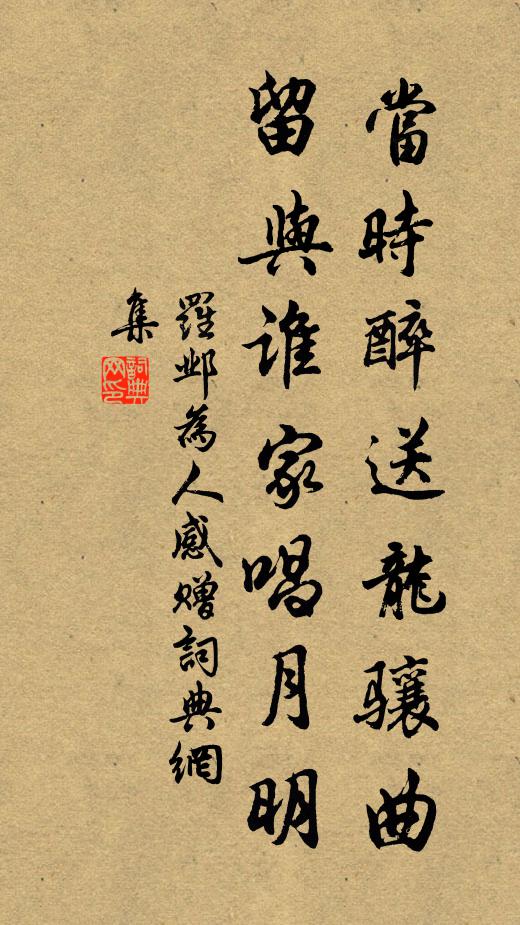 當時醉送龍驤曲
留與誰家唱月明
羅邺為人感贈詞典網
集
詞典
网印